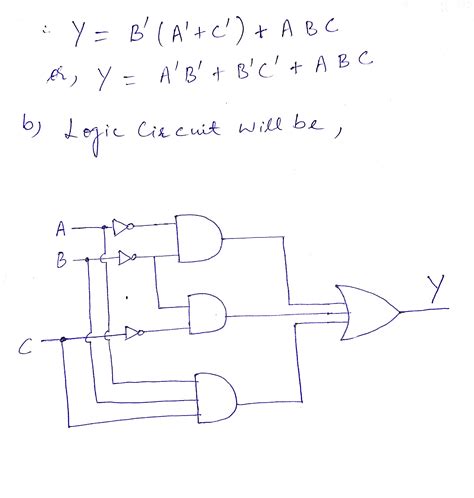 ∴ Y = B'(A'+C') + A B C
or, Y = A'B' + B'C' + A B C
b) Logic Circuit will be,
A
B
C
Y